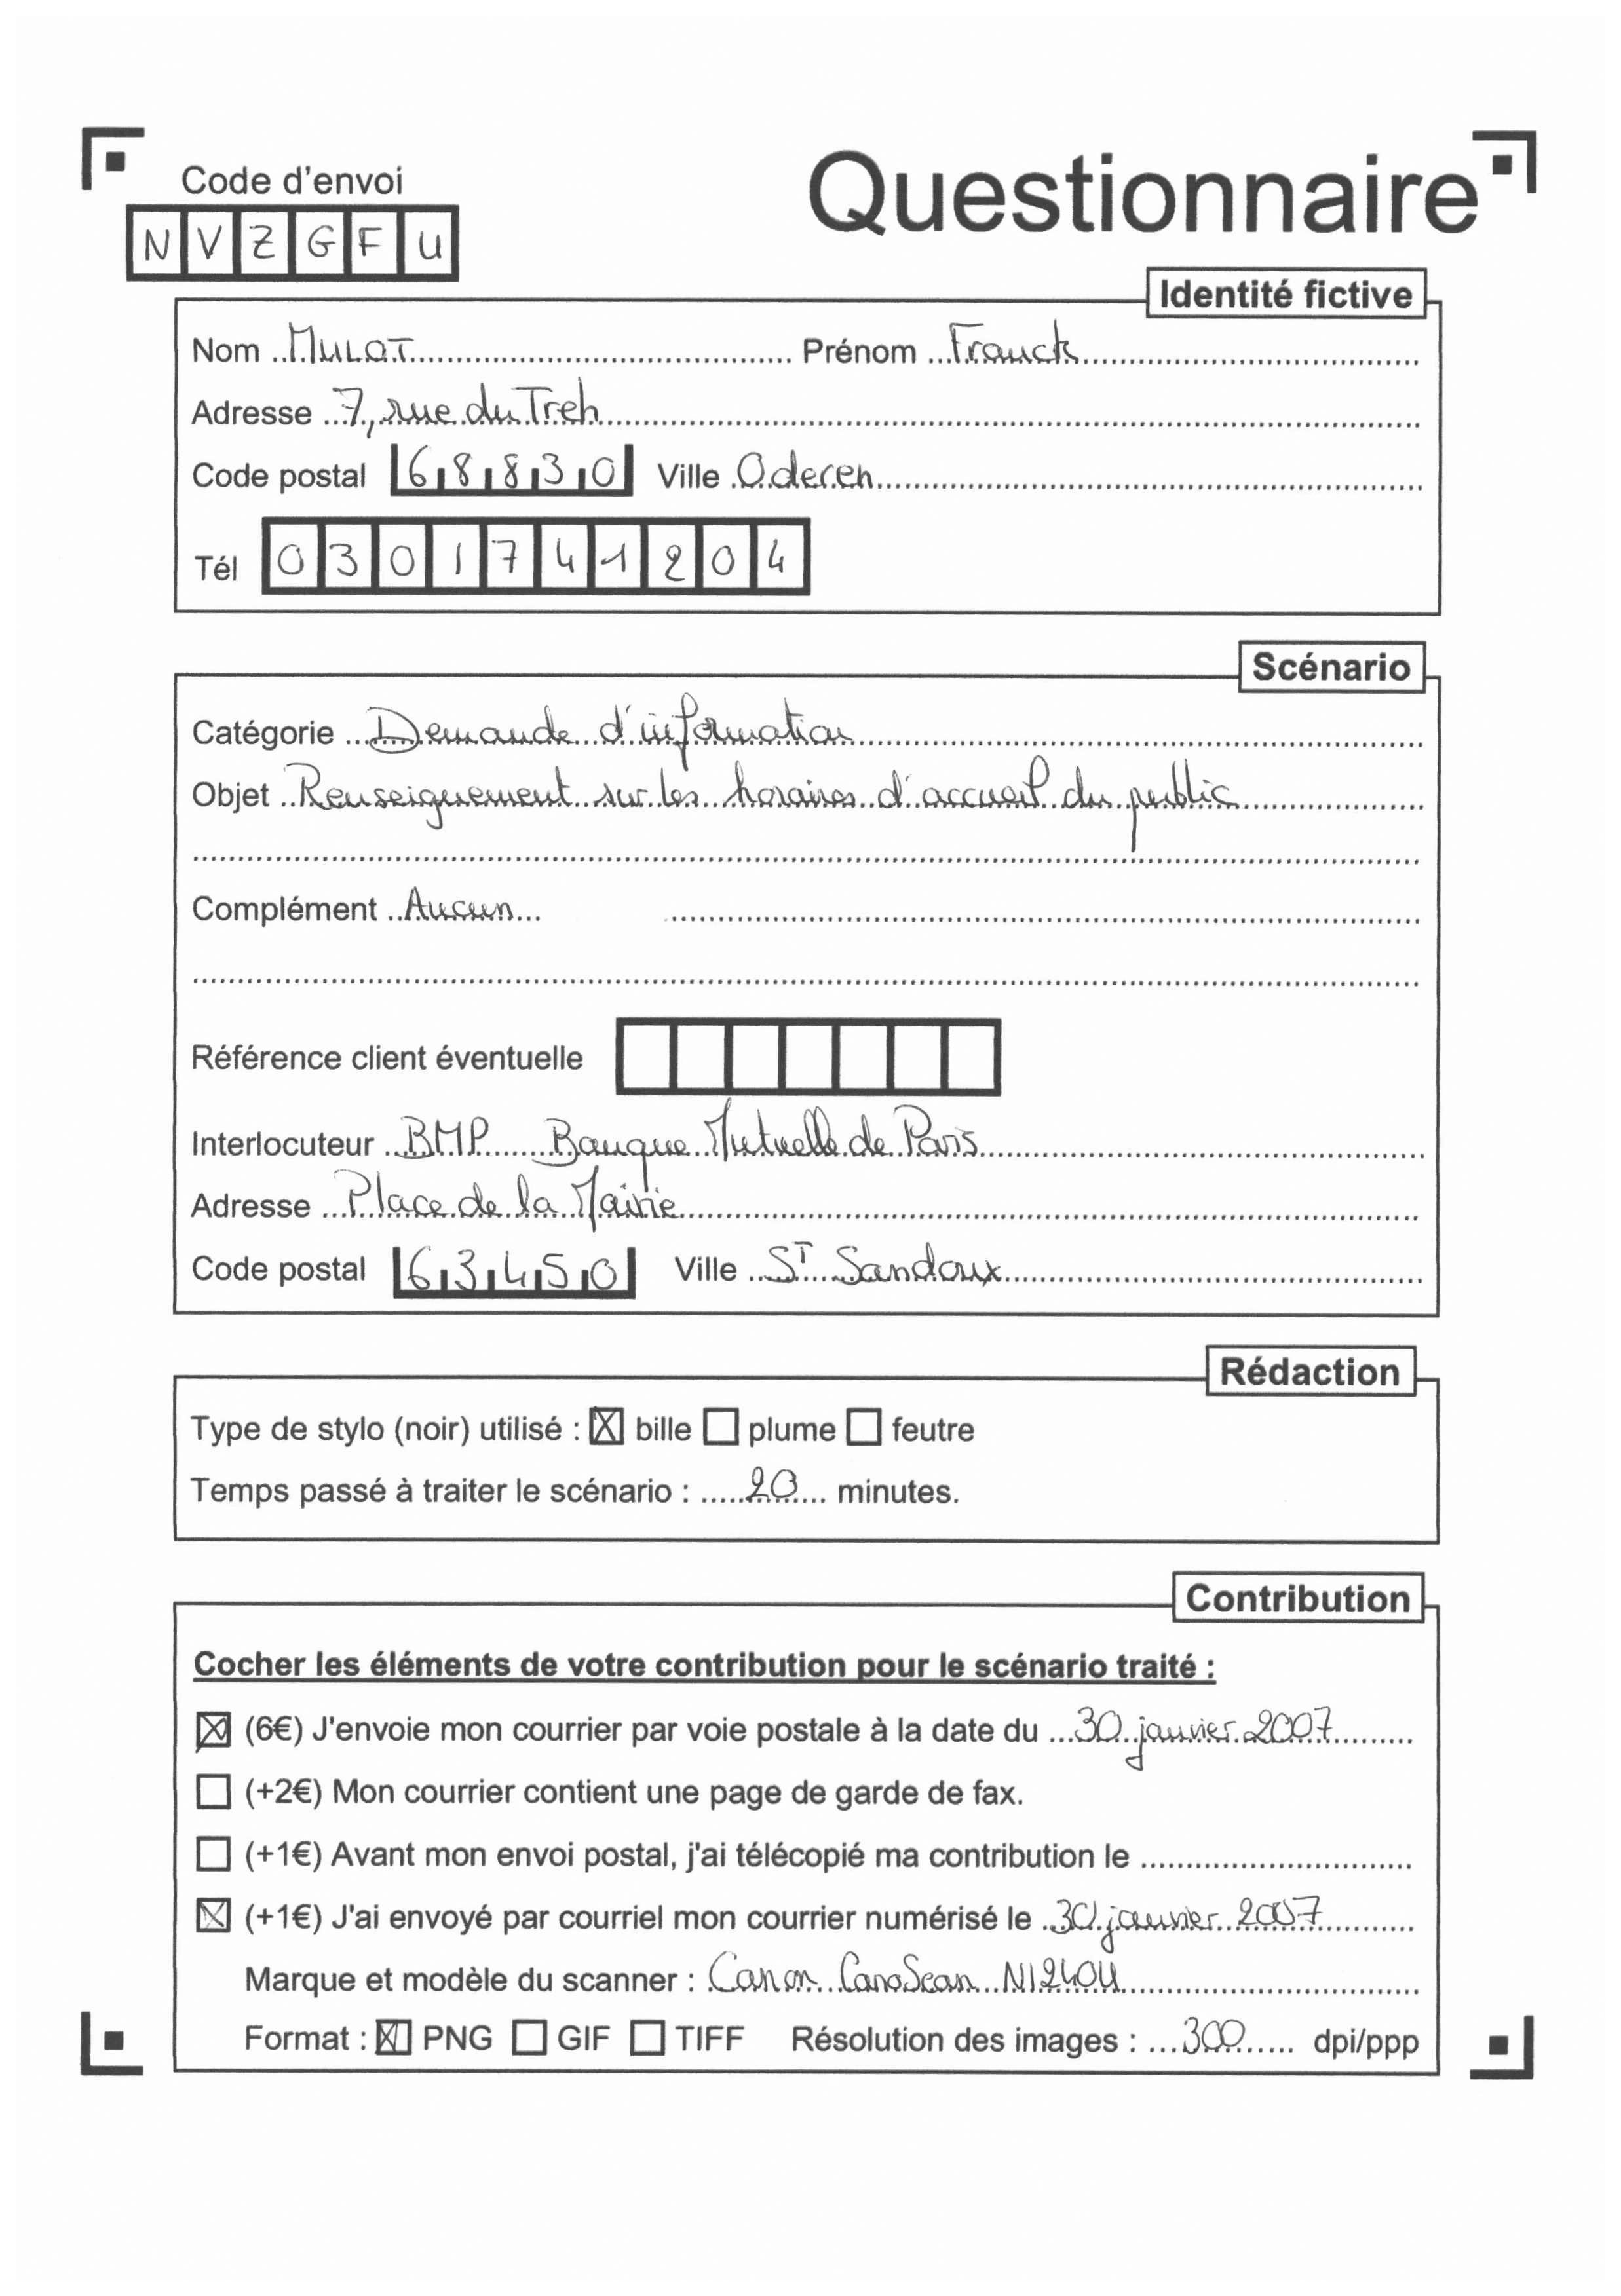 Code d'envoi
Questionnaire
N V Z G F U
Identité fictive
Nom MULOT Prénom Franck
Adresse 7, rue du Treh
Code postal 68830 Ville Oderen
Tél 0301741204
Scénario
Catégorie Demande d'information
Objet Renseignement sur les horaires d'accueil du public
Complément Aucun
Référence client éventuelle
Interlocuteur BMP Banque Mutuelle de Paris
Adresse Place de la Mairie
Code postal 63450 Ville ST Sandoux
Rédaction
Type de stylo (noir) utilisé : ☒ bille ☐ plume ☐ feutre
Temps passé à traiter le scénario : 20 minutes.
Contribution
Cocher les éléments de votre contribution pour le scénario traité :
☒ (6€) J'envoie mon courrier par voie postale à la date du 30 janvier 2007
☐ (+2€) Mon courrier contient une page de garde de fax.
☐ (+1€) Avant mon envoi postal, j'ai télécopié ma contribution le
☒ (+1€) J'ai envoyé par courriel mon courrier numérisé le 30 janvier 2007
Marque et modèle du scanner : Canon CanoScan N1240U
Format : ☒ PNG ☐ GIF ☐ TIFF Résolution des images : 300 dpi/ppp